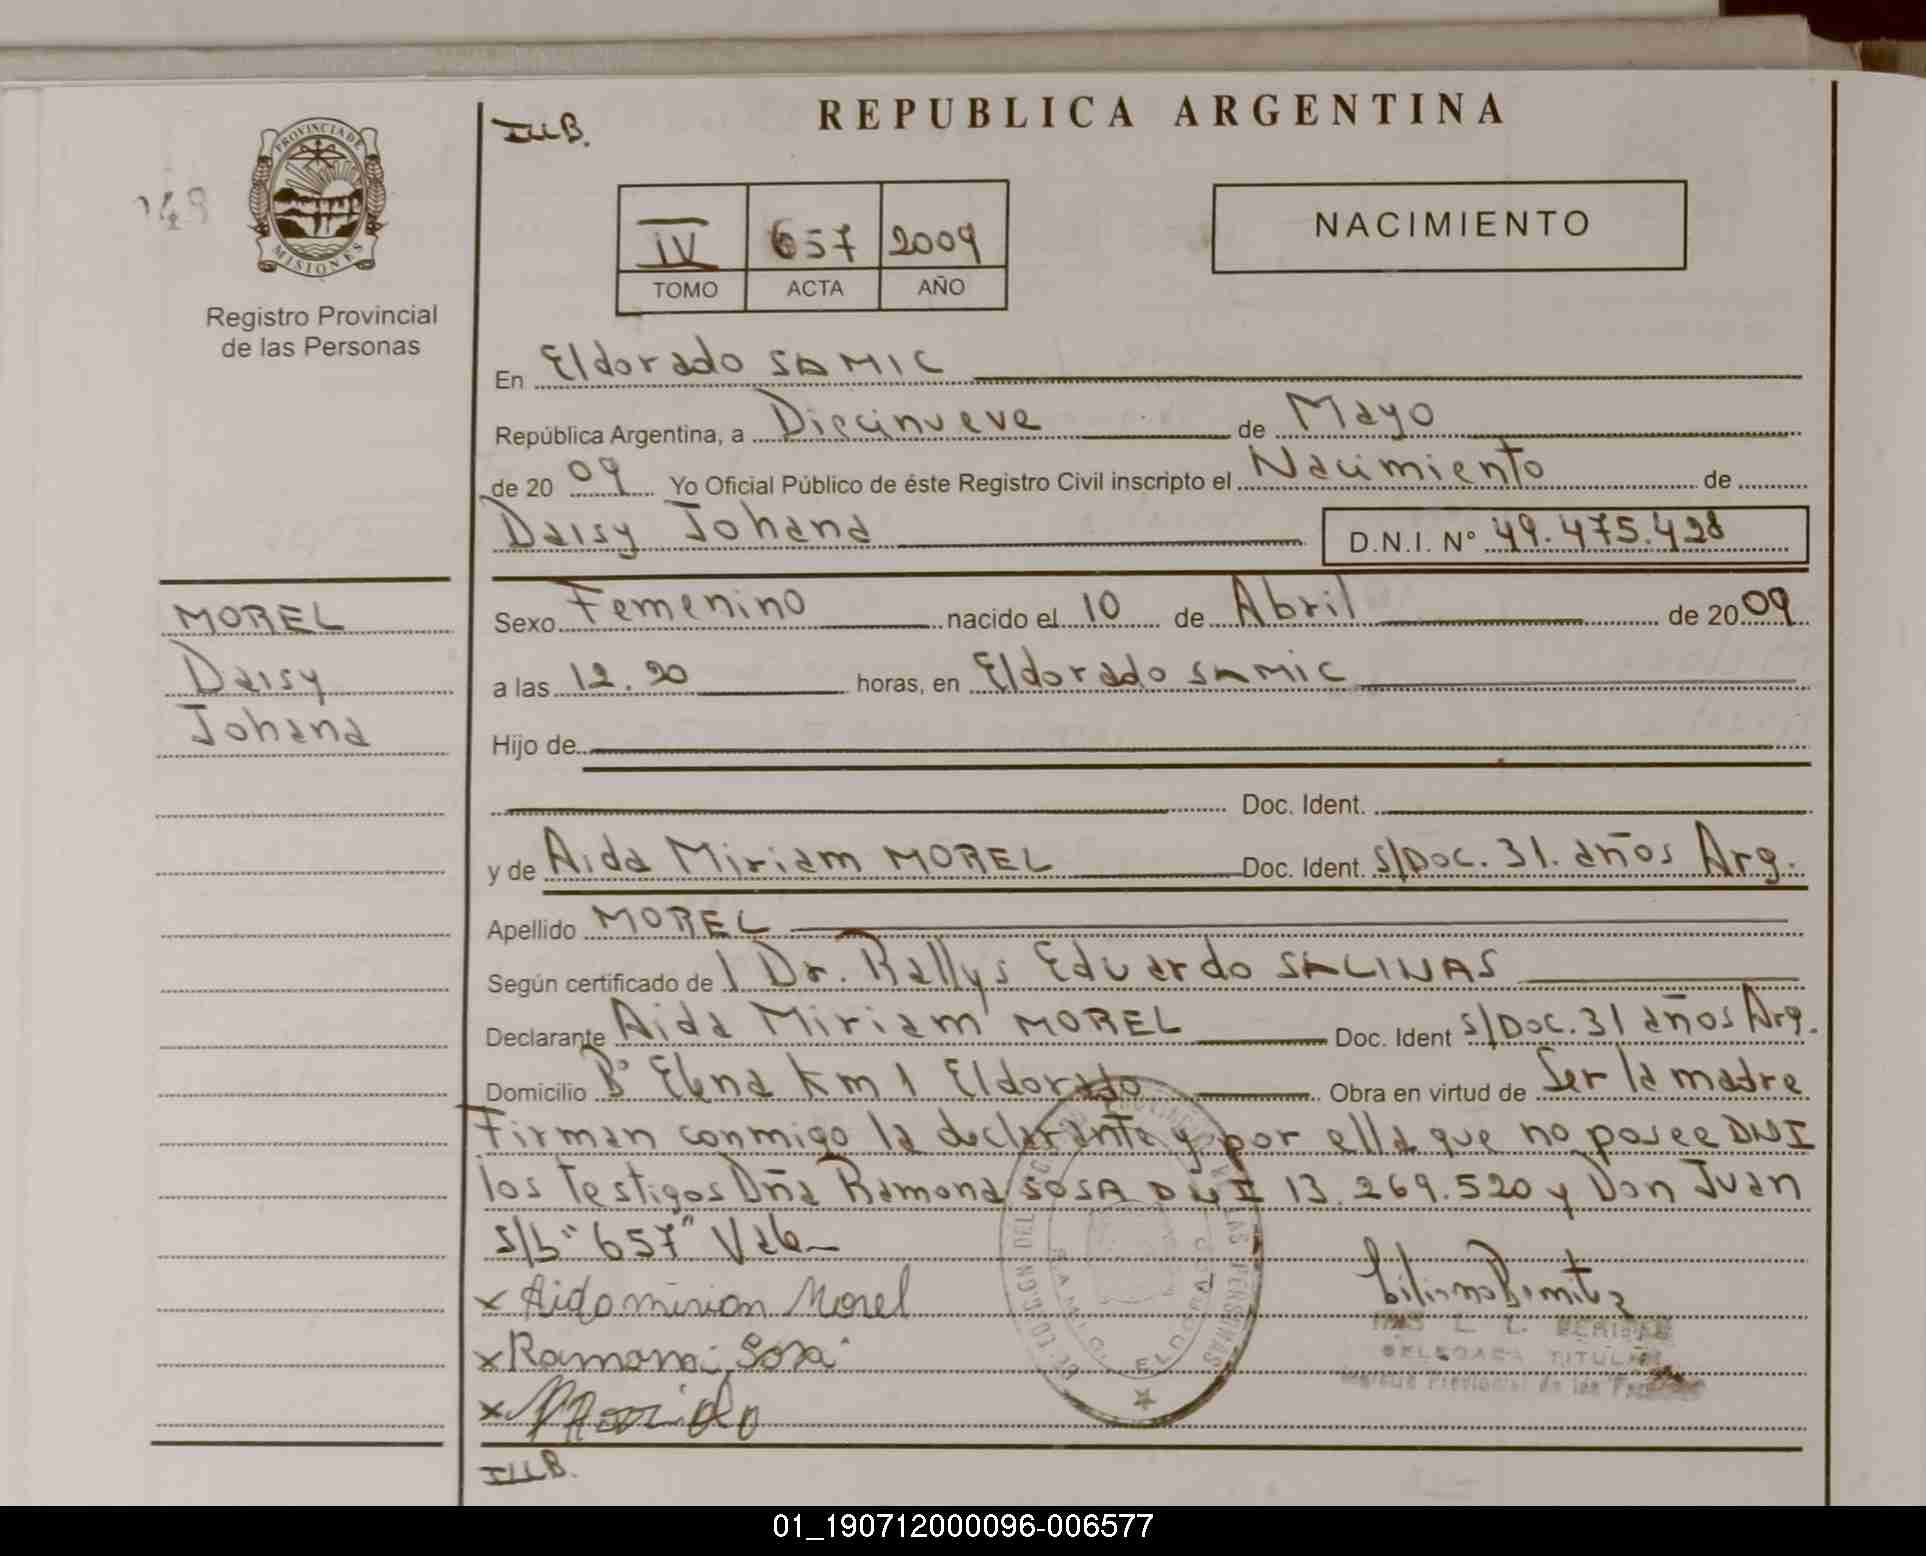 I.L.L.B.
REPUBLICA ARGENTINA
PROVINCIA DE
MISIONES
IV 657 2009
TOMO ACTA AÑO
NACIMIENTO
Registro Provincial
de las Personas
En Eldorado SAMIC
República Argentina, a Diecinueve de Mayo
de 20 09 Yo Oficial Público de éste Registro Civil inscripto el Nacimiento de
Daisy Johana D.N.I. N° 49.475.428
MOREL
Daisy
Johana
Sexo Femenino nacido el 10 de Abril de 20 09
a las 12.20 horas, en Eldorado SAMIC
Hijo de
Doc. Ident.
y de Aida Miriam MOREL Doc. Ident. s/Doc. 31. años Arg.
Apellido MOREL
Según certificado de Dr. Rallys Eduardo SALINAS
Declarante Aida Miriam MOREL Doc. Ident s/Doc. 31 años Arg.
Domicilio B° Elena Km 1 Eldorado Obra en virtud de Ser la madre
Firman conmigo la declarante y por ella que no posee DNI
los testigos Dña Ramona SOSA DNI 13.269.520 y Don Juan
s/b "657" Vale
x Aida miriam Morel
x Ramona Sosa
x
DELEGADA TITULAR
Registro Provincial de las Personas
ELDORADO
01_190712000096-006577